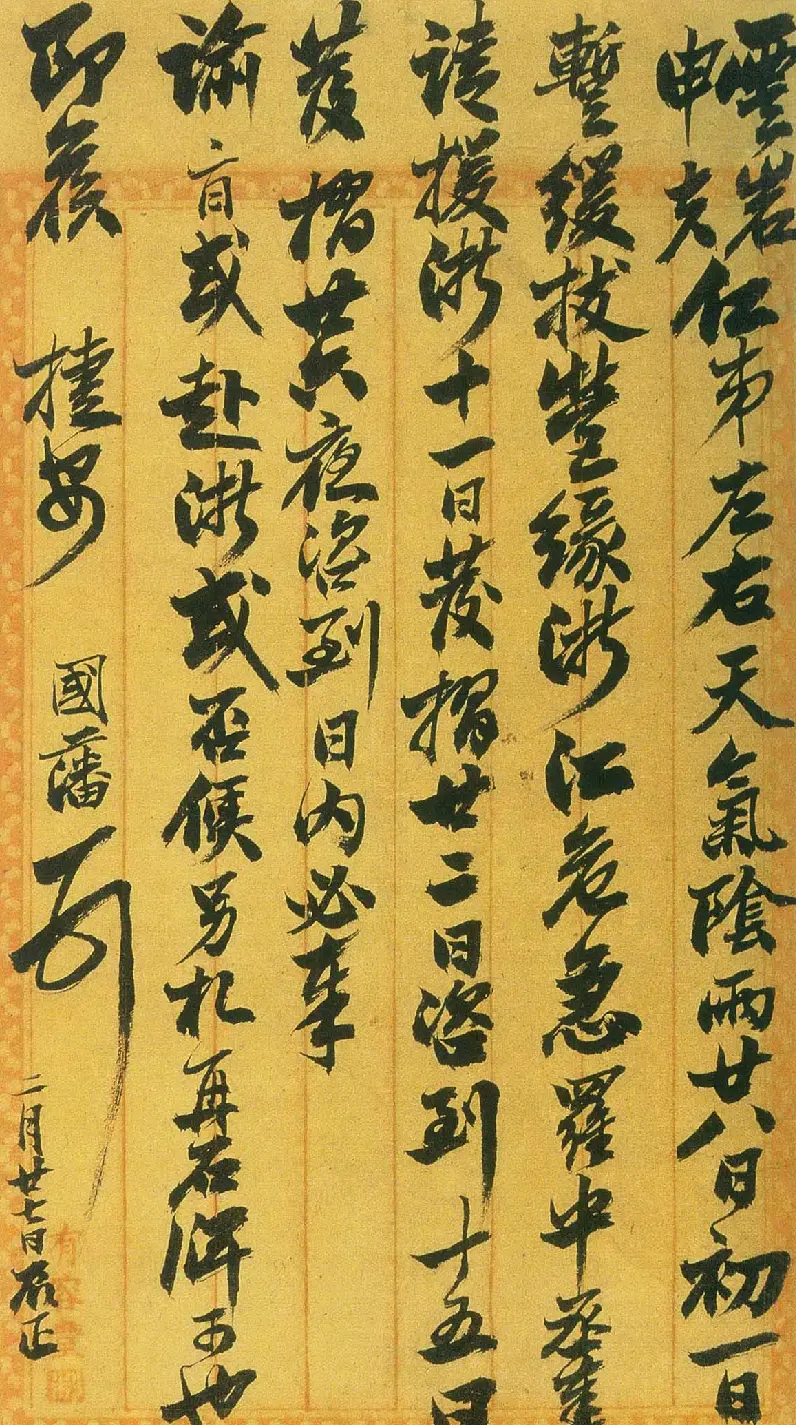 雲岩
申夫仁弟左右天氣陰雨廿八日初一日
暫緩拔營緣浙江危急羅中丞
請援浙十一日發摺廿二日咨到十五日
發摺廿六夜咨到日內必奉
諭旨或赴浙或否候另札再石牌可也
即候 捷安 國藩
二月廿七日辰正